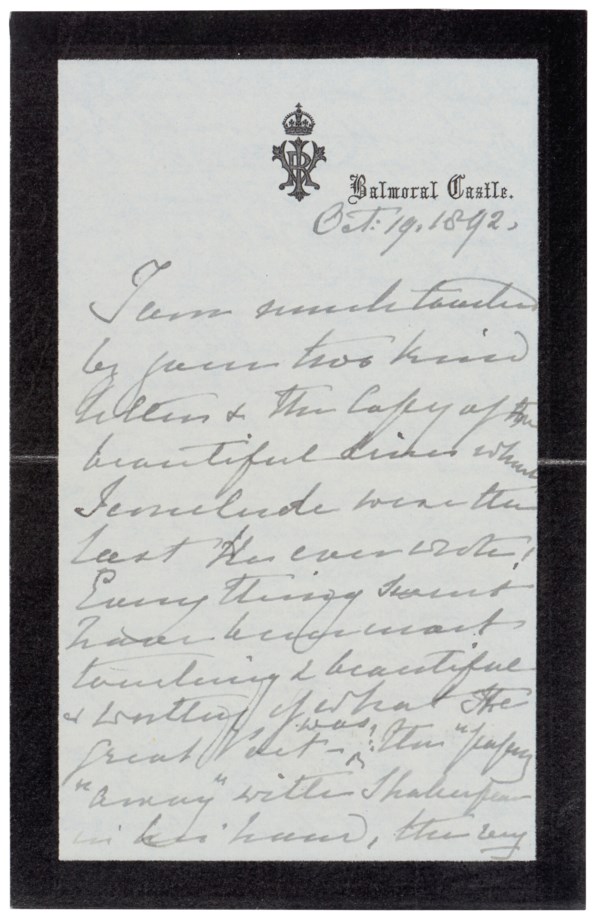 Balmoral Castle.
Oct: 19. 1892.
I am much touched
by your two kind
letters & the Copy of the
beautiful lines which
I conclude were the
last He ever wrote!
Everything must
have been most
touching & beautiful
& worthy of what the
great Poet was; - the "passing
"away" with Shakespeare
in his hand, the very